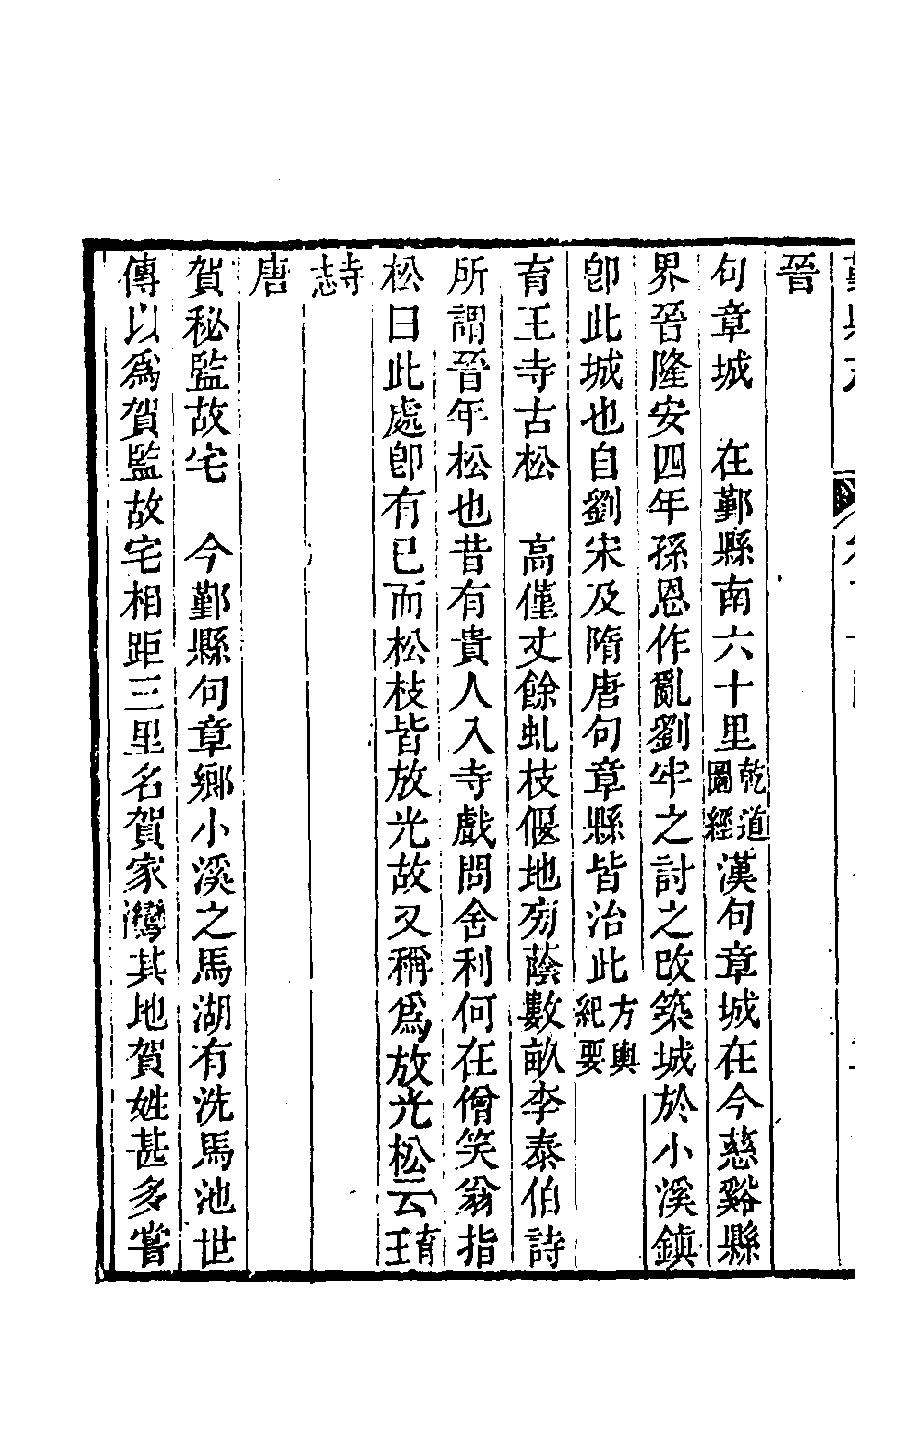 晉
句章城　在鄞縣南六十里乾道圖經漢句章城在今慈谿縣
界晉隆安四年孫恩作亂劉牢之討之改築城於小溪鎮
卽此城也自劉宋及隋唐句章縣皆治此方輿紀要
育王寺古松　高僅丈餘虬枝偃地旁蔭數畝李泰伯詩
所謂晉年松也昔有貴人入寺戲問舍利何在僧笑翁指
松曰此處卽有已而松枝皆放光故又稱爲放光松云育王
誌
唐
賀秘監故宅　今鄞縣句章鄉小溪之馬湖有洗馬池世
傳以爲賀監故宅相距三里名賀家灣其地賀姓甚多嘗